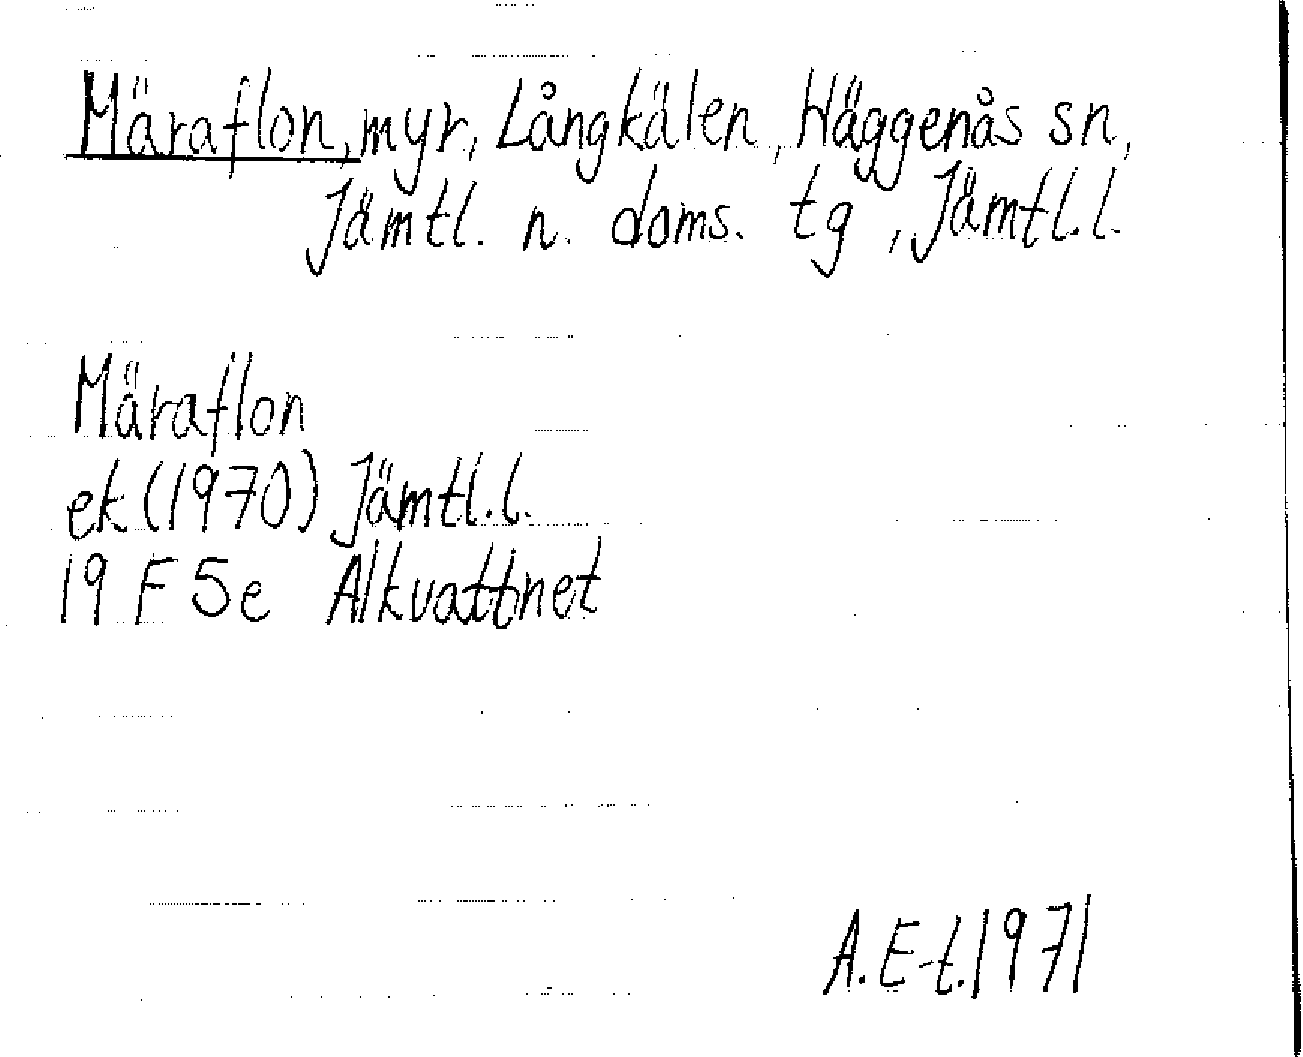 Märaflon, myr, Långkälen, Häggenås sn,
Jämtl. n. doms. tg, Jämtl. l.
Märaflon
ek (1970) Jämtl. l.
19 F 5e Alkvattnet
A. E-t. 1971